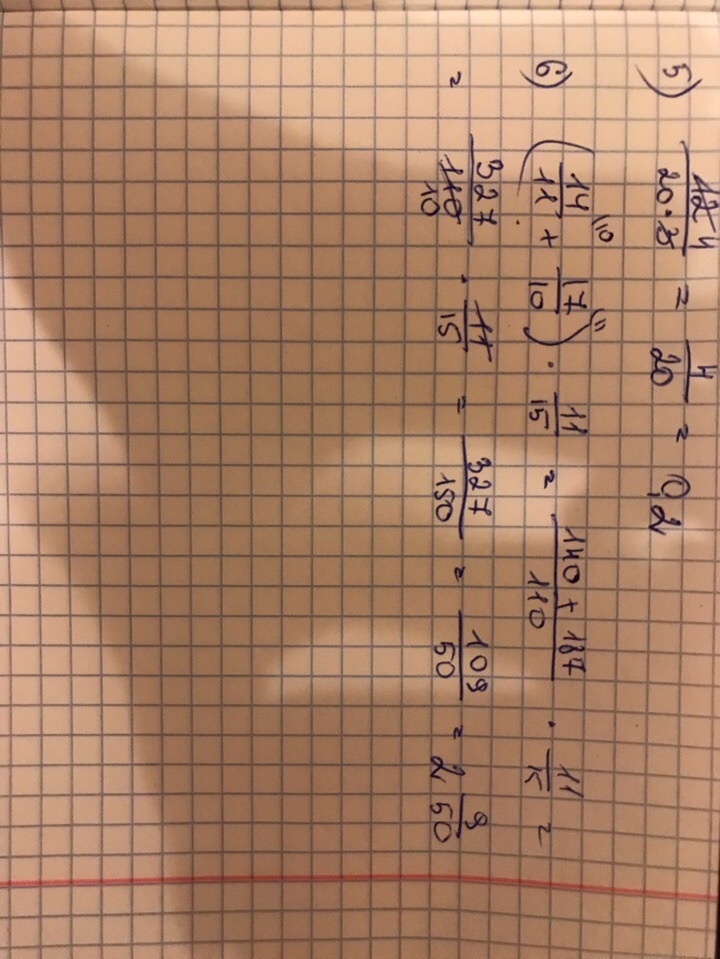 5) 12 4 / 20·3 = 4/20 = 0,2
6) (14/11 \10 + 17/10 \11) · 11/15 = 140 + 187 / 110 · 11/15 =
= 327 / 110 10 · 11/15 = 327/150 = 109/50 = 2 9/50